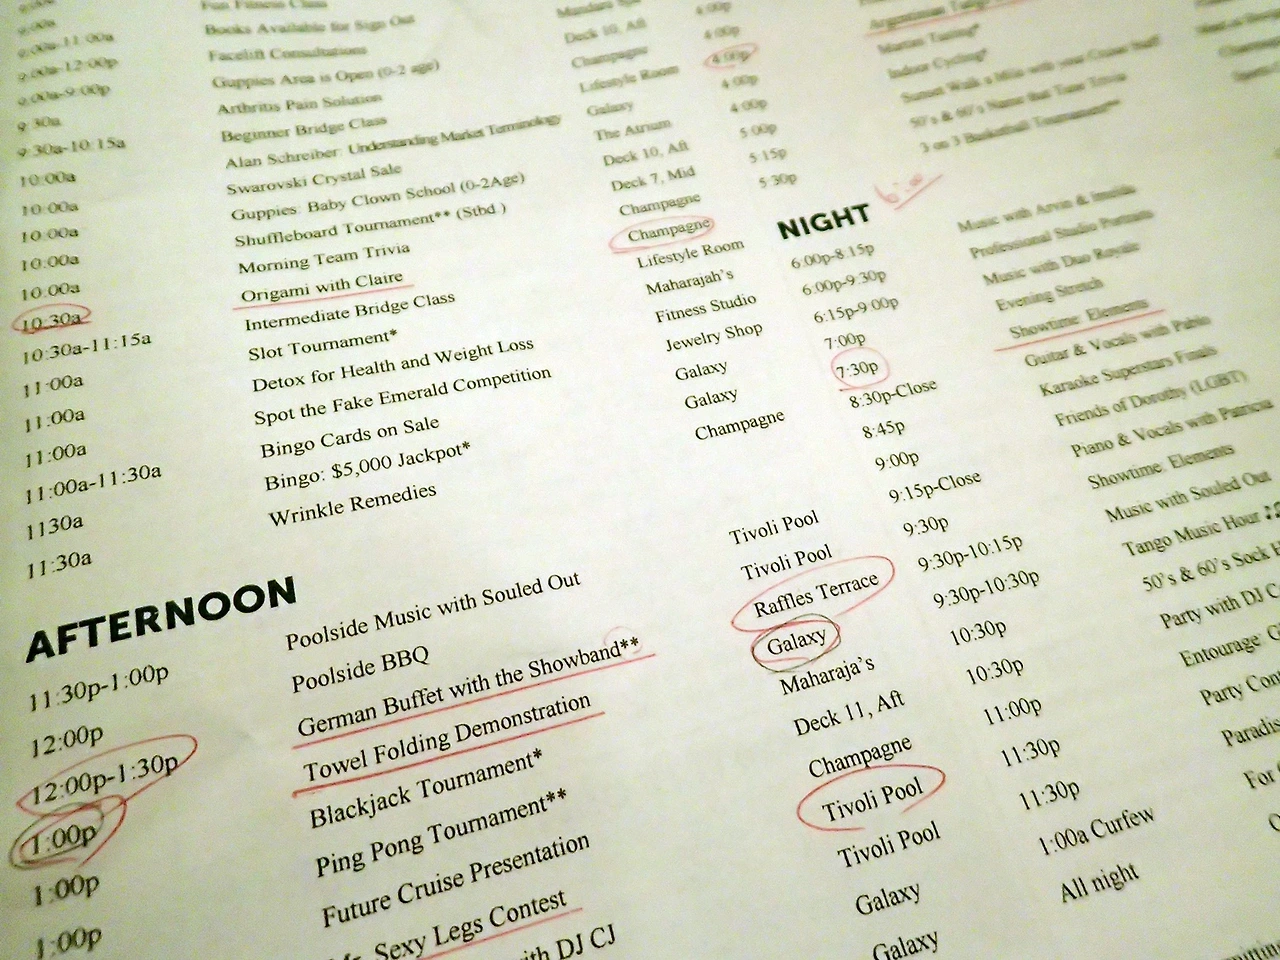 Fun Fitness Class
9:00a-11:00a Books Available for Sign Out
9:00a-12:00p Facelift Consultations Deck 10, Aft
9:00a-9:00p Guppies Area is Open (0-2 age) Champagne
9:30a Arthritis Pain Solution Lifestyle Room
9:30a-10:15a Beginner Bridge Class Galaxy
10:00a Alan Schreiber: Understanding Market Terminology The Atrium
10:00a Swarovski Crystal Sale Deck 10, Aft
10:00a Guppies: Baby Clown School (0-2Age) Deck 7, Mid
10:00a Shuffleboard Tournament** (Stbd.) Champagne
10:00a Morning Team Trivia Champagne
10:30a Origami with Claire Lifestyle Room
10:30a-11:15a Intermediate Bridge Class Maharajah's
11:00a Slot Tournament* Fitness Studio
11:00a Detox for Health and Weight Loss Jewelry Shop
11:00a Spot the Fake Emerald Competition Galaxy
11:00a-11:30a Bingo Cards on Sale Galaxy
1130a Bingo: $5,000 Jackpot* Champagne
11:30a Wrinkle Remedies
AFTERNOON
11:30p-1:00p Poolside Music with Souled Out Tivoli Pool
12:00p Poolside BBQ Tivoli Pool
12:00p-1:30p German Buffet with the Showband** Raffles Terrace
1:00p Towel Folding Demonstration Galaxy
1:00p Blackjack Tournament* Maharaja's
1:00p Ping Pong Tournament** Deck 11, Aft
Future Cruise Presentation Champagne
Sexy Legs Contest Tivoli Pool
with DJ CJ Tivoli Pool
Galaxy
Galaxy
4:00p
4:00p
4:00p
4:00p Indoor Cycling*
4:00p Sunset Walk a Mile with your Cruise Staff
5:00p 50's & 60's Name that Tune Trivia
5:15p 3 on 3 Basketball Tournament**
5:30p
NIGHT
6:00p-8:15p Music with Arvin &
6:00p-9:30p Professional Studio Portraits
6:15p-9:00p Music with Duo Royale
7:00p Evening Stretch
7:30p Showtime: Elements
8:30p-Close Guitar & Vocals with Pablo
8:45p Karaoke Superstars Finals
9:00p Friends of Dorothy (LGBT)
9:15p-Close Piano & Vocals with Patricia
9:30p Showtime: Elements
9:30p-10:15p Music with Souled Out
9:30p-10:30p Tango Music Hour
10:30p 50's & 60's Sock
10:30p Party with DJ
11:00p Entourage
11:30p Party
11:30p
1:00a Curfew For
All night